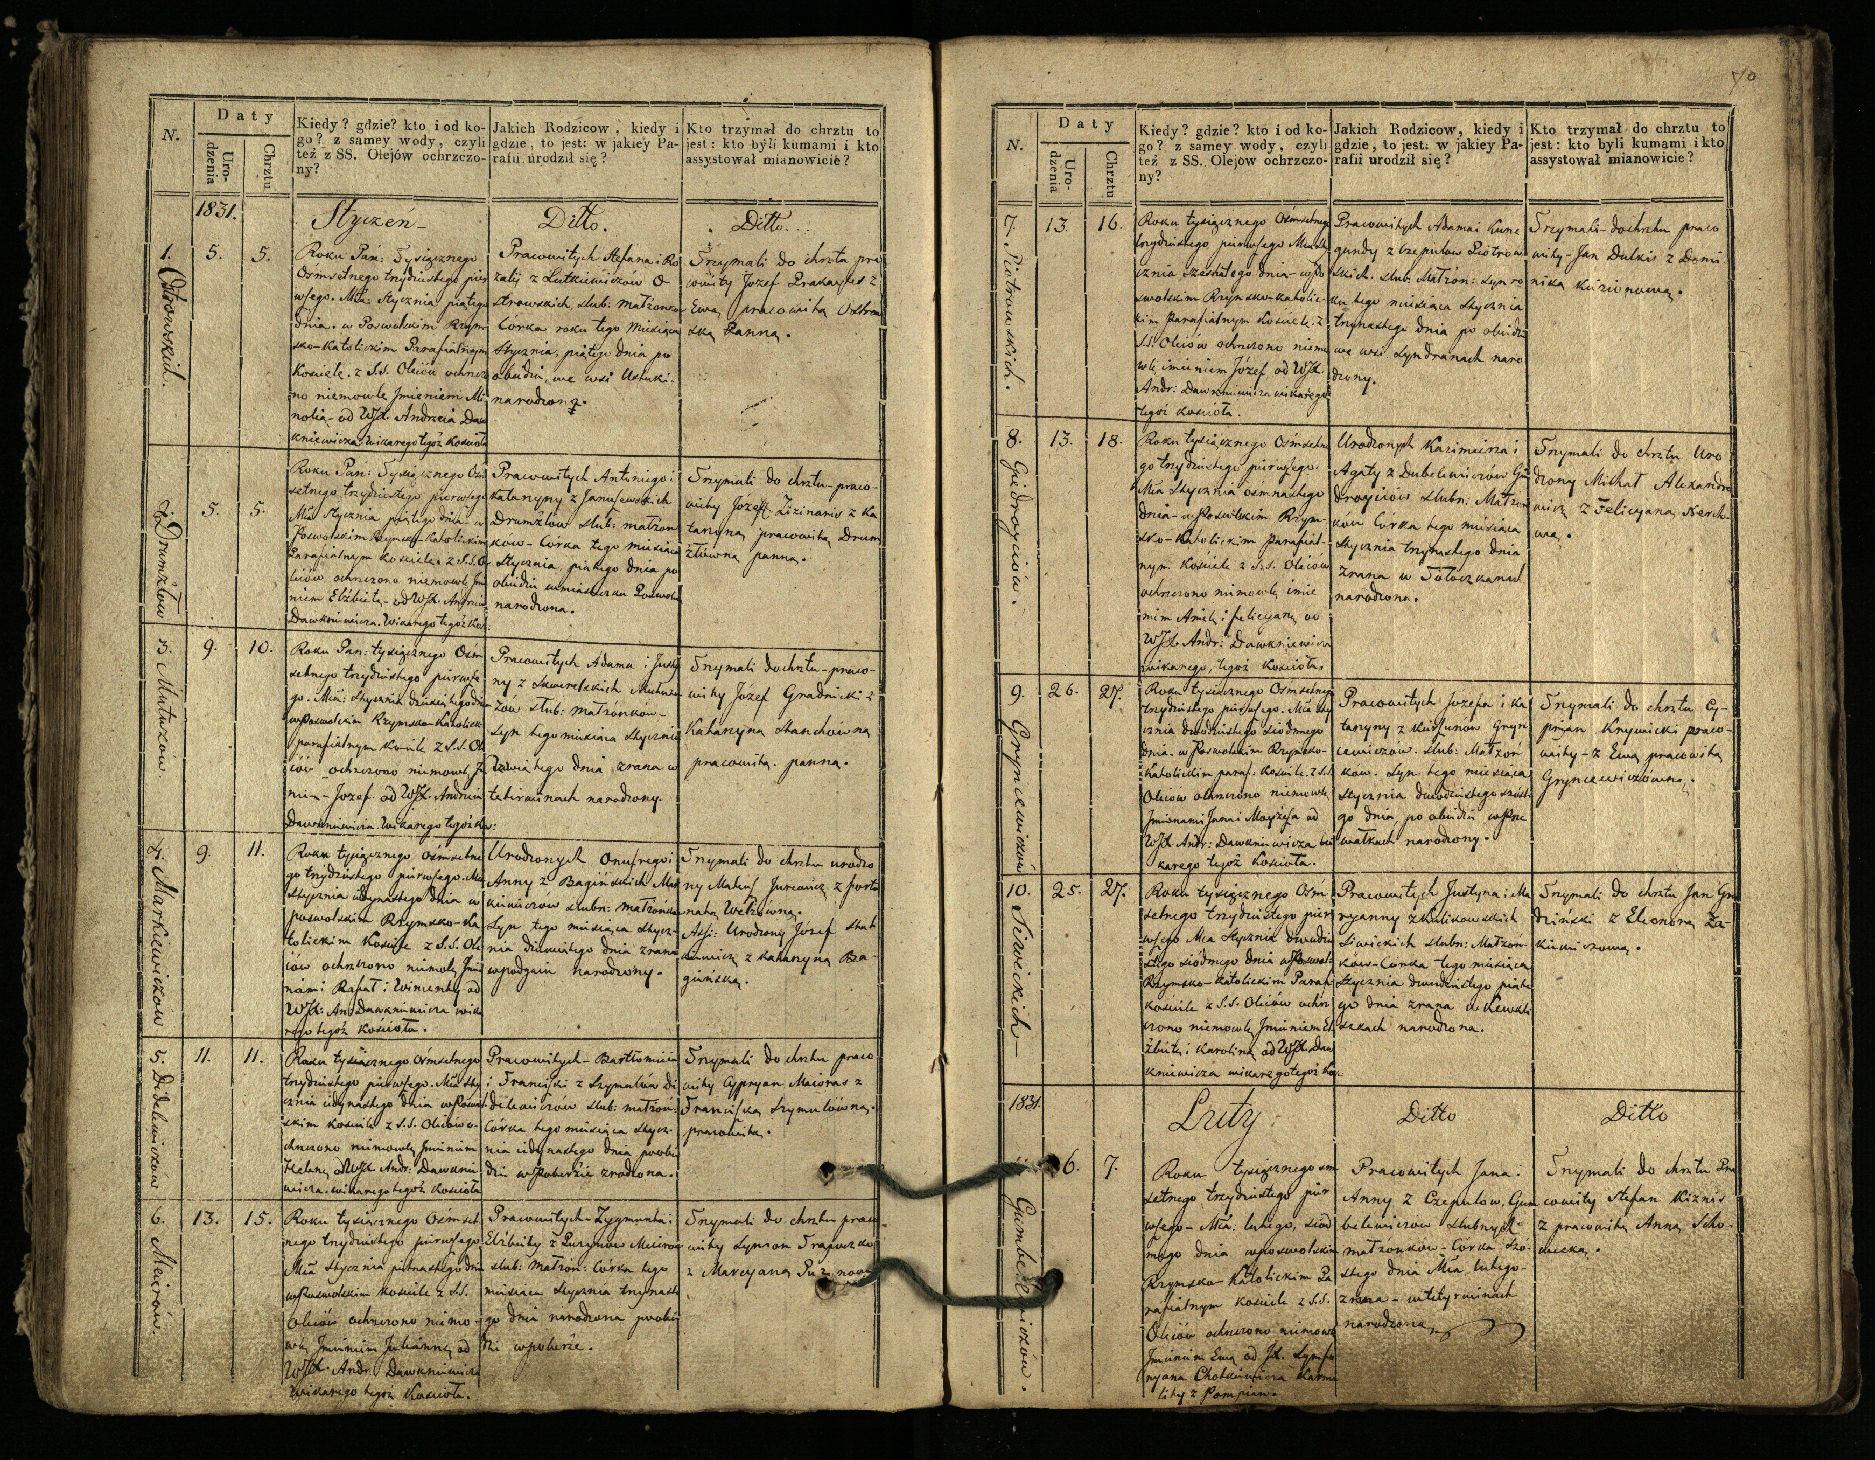 N.
Daty
Uro-
dzenia
Chrztu
Kiedy? gdzie? kto i od ko-
go? z samey wody, czyli
też z SS. Olejów ochrzczo-
ny?
Jakich Rodzicow, kiedy i
gdzie, to jest: w jakiey Pa-
rafii urodził się?
Kto trzymał do chrztu to
jest: kto byli kumami i kto
assystował mianowicie?
1831.
Styczeń
Ditto.
Ditto.
1.
5.
5.
Roku Pań: Tysiącznego
Osmsetnego trzydziestego pier
wszego. Mca Stycznia piątego
dnia. w Poswolskim Rzym-
sko-Katolickim Parafialnym
Kosciele. z S.S. Oleiów ochrzczo
no niemowle Jmieniem
od WJX. Andrzeia Daw
kniewicza Wikarego tegóż Kościoła
Pracowitych Stefana i Ro
zalij z Lutkiewiczów O-
strowskich slub: małżonków
Córka roku tego Miesiąca
Stycznia, piątego dnia po
obiedzie, we wsi
narodzona.
Trzymali do chrztu pra
cowity Jozef z
Ewą pracowitą Ostrow
ską Panną.
2. Drumżtów
5.
5.
Roku Pan: Tysiącznego Ośm
setnego trzydziestego pierwszego
Mca Stycznia piątego dnia w
Poswolskim Rzymsko-Katolickim
Parafialnym Kosciele z S.S. O-
leiów ochrzczono niemowle Jmie
niem Elżbieta od WJX. Andrzeia
Dawkniewicza. Wikarego tegóż Koś:
Pracowitych Antoniego i
Katarzyny z Januszewskich
Drumżtów slub: małżon
ków Córka tego miesiąca
Stycznia, piątego dnia po
obiedzie w miasteczku Poswolu
narodzona.
Trzymali do chrztu praco-
wity Józef Zizinavis z Ka
tarzyną pracowitą Drum
żtówną panną.
3. Matuzów
9.
10.
Roku Pan: tysiącznego Ośm
setnego trzydziestego pierwsze
go. Mca Stycznia dziesiątego dnia
w Poswolskim Rzymsko-Katolick:
parafialnym Kosciele z S.S. Ol
eiów ochrzczono niemowle Jm
niem Jozef od WJX. Andrzeia
Dawkniewicza Wikarego tegóż Ko:
Pracowitych Adama i Justy
ny z Matu
zów slub: małżonków
Syn tego miesiąca Stycznia
Dziewiątego dnia zrana w
narodzony.
Trzymali do chrztu praco-
wity Józef Gradnicki z
Katarzyną Stanchówną
pracowitą panną.
4. Markiewiczów
9.
11.
Roku tysiącznego Ośmsetne
go trzydziestego pierwszego Mca
Stycznia iedynastego dnia w
poswolskim Rzymsko-Ka
tolickim Kosciele z S.S. Ole
iów ochrzczono niemowlę Jmio
nami Rafał i Wincenty od
WJX: And: Dawkniewicza wika
rego tegóż Kościoła.
Urodzonych Onufrego i
Anny z Bagińskich Mar
kiewiczow slubn: małżonków
Syn tego miesiąca Stycz-
nia dziewiątego dnia zrana
narodzony.
Trzymali do chrztu urodzo
ny Mateusz Jurewicz z Fortu
natą Welżówną.
Assi: Urodzony Jozef
z Katarzyną Ba-
gińską.
5. Didelewiczów
11.
11.
Roku tysiącznego Ośmsetnego
trzydziestego pierwszego. Mca Sty
cznia iedynastego dnia w Poswol
skim Kosciele z S.S. Oleiów o-
chrzczono niemowlę Jmieniem
Helena od WJX Andr: Dawknie
wicza. wikarego tegóż Kościoła
Pracowitych Bartłomieia
i Franciszki z Szymulów Di
delewiczów slub: małżon:
Córka tego miesiąca Stycz
nia iedynastego dnia poobie
dzie w Poberże zrodzona.
Trzymali do chrztu praco
wity Cypryan Maioras z
Franciszką Szymulówną
pracowitą.
6. Meierów.
13.
15.
Roku tysiącznego Ośmset
nego trzydziestego pierwszego
Mca Stycznia piętnastego dnia
w Poswolskim Kosciele z S.S.
Oleiów ochrzczono niemo
wlę Jmieniem Julianna od
WJX. Andr: Dawkniewicza
Wikarego tegóż Kościoła.
Pracowitych Zygmunta i
Elżbiety z
slub: Małżon: Córka tego
miesiąca Stycznia trzynaste
go dnia narodzona poobie
dzie w poberże.
Trzymali do chrztu praco
wity Symon
z Marcyaną
70
N.
Daty
Uro-
dzenia
Chrztu
Kiedy? gdzie? kto i od ko-
go? z samey wody, czyli
też z SS. Olejow ochrzczo-
ny?
Jakich Rodzicow, kiedy i
gdzie, to jest: w jakiey Pa-
rafii urodził się?
Kto trzymał do chrztu to
jest: kto byli kumami i kto
assystował mianowicie?
7. Piotrowskich.
13.
16.
Roku tysiącznego Ośmsetnego
trzydziestego pierwszego Mca Sty
cznia szesnastego dnia w Po
swolskim Rzymsko-Katolic-
kim Parafialnym Kosciele. z
S.S. Oleiów ochrzczono niemo
wlę imieniem Józef od WJX.
Andr: Dawkniewicza wikarego
tegóż kościoła.
Pracowitych Adama i Kune
gundy z Czepulów Piotrow
skich. slub: Małżon: Syn ro
ku tego miesiąca Stycznia
trzynastego dnia po obiedzie
we wsi Syndranach naro
dzony.
Trzymali do chrztu praco
wity Jan Dulkis z Domi
niką Kuzionową.
8. Giedroyciów.
13.
18.
Roku tysiącznego Ośmsetne
go trzydziestego pierwszego.
Mca Stycznia osmnastego
dnia w Poswolskim Rzym-
sko-Katolickim Parafial-
nym Kosciele z S.S. Oleiów
ochrzczono niemowlę imie
niem Amelę i felicyana od
WJX. Andr: Dawkniewicza
wikarego, tegóż Kościoła.
Urodzonych Kazimierza i
Agaty z Dubelewiczów Gie
droyciów slubn: Małżon
ków Córka tego miesiąca
Stycznia trzynastego dnia
Zrana w
narodzona.
Trzymali do chrztu Uro
dzony Michał Alexandro
wicz z Felicyaną
9. Gryncewiczów
26.
27.
Roku tysiącznego Osmsetnego
trzydziestego pierwszego. Mca Sty
cznia dwudziestego siódmego
dnia. w Poswolskim Rzymsko-
Katolickim paraf: Kosciele. z S.S.
Oleiow ochrzczono niemowlę
Jmionami Jana i od
WJX Andr: Dawkniewicza wi
karego tegóż Kościoła.
Pracowitych Jozefa i Ka
tarzyny z Gryn
cewiczów. slub: Małżon
ków. Syn tego miesiąca
Stycznia dwudziestego szóste
go dnia, po obiedzie
narodzony.
Trzymali do chrztu Cy-
pryan Krywicki praco-
wity z Ewą pracowitą
Gryncewiczówną.
10. Siwickich
25.
27.
Roku tysiącznego Ośm
setnego trzydziestego pier
wszego Mca Stycznia dwudzie
stego siódmego dnia w Poswol:
Rzymsko-Katolickim Parafi
kościele z S.S. Oleiów ochrz
czono niemowlę Jmieniem El
żbietę i Karolinę od WJX. Daw
kniewicza wikarego tegóż Koś:
Pracowitych Justyna i Ma
ryanny z Kulikowskich
Siwickich slubn: Małżon-
ków Córka tego miesiąca
Stycznia dwudziestego piąte
go dnia zrana w
narodzona.
Trzymali do chrztu Jan Gru
dziński z Eleonorą
1831.
Luty
Ditto
Ditto
Gumbelewiczów.
6.
7.
Roku tysiącznego osm
setnego trzydziestego pier
wszego Mca: lutego, siód
mego dnia w poswolskim
Rzymsko-Katolickim Pa
rafialnym Kosciele z S.S.
Oleiów ochrzczono niemowlę
Jmieniem Ewa od JX. Symfo
ryana Chodkiewicza Karme
lity z Pompian.
Pracowitych Jana i
Anny z Czepulow Gum
belewiczow slubnych
małżonków Córka szó-
stego dnia Mca lutego
zrana
narodzona
Trzymali do chrztu Pra
cowity Stefan Kiznis
z pracowitą Anną